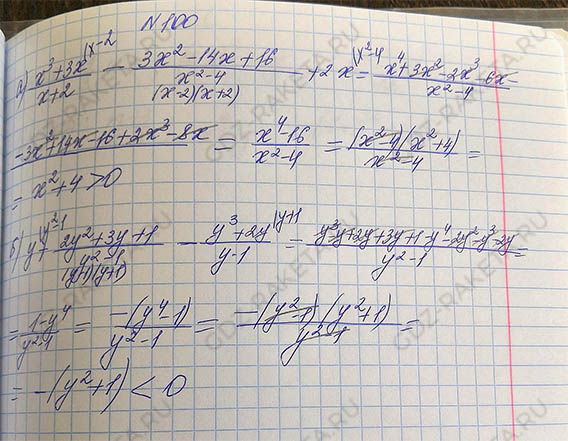 N 100
а) (x³+3x)/(x+2) |x-2 - (3x²-14x+16)/(x²-4) + 2x |x²-4 = (x⁴+3x²-2x³-6x)/(x²-4)
(x-2)(x+2)
(-3x²+14x-16+2x³-8x) = (x⁴-16)/(x²-4) = ((x²-4)(x²+4))/(x²-4) =
= x²+4>0
б) y |y²-1 + (2y²+3y+1)/(y²-1) - (y³+2y)/(y-1) |y+1 = (y³-y+2y²+3y+1-y⁴-2y²-y³-2y)/(y²-1) =
(y-1)(y+1)
= (1-y⁴)/(y²-1) = (-(y⁴-1))/(y²-1) = (-(y²-1)(y²+1))/(y²-1) =
= -(y²+1) < 0
GDZ-RAKETA.RU